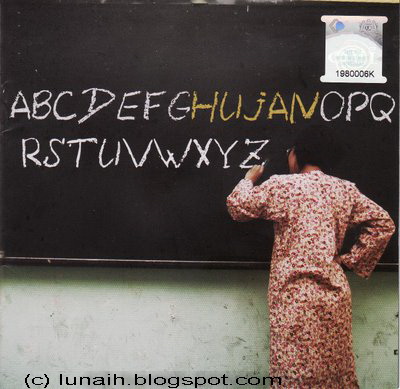 1980006K
ABCDEFGHUJANOPQ
RSTUVWXYZ
(c) lunaih.blogspot.com